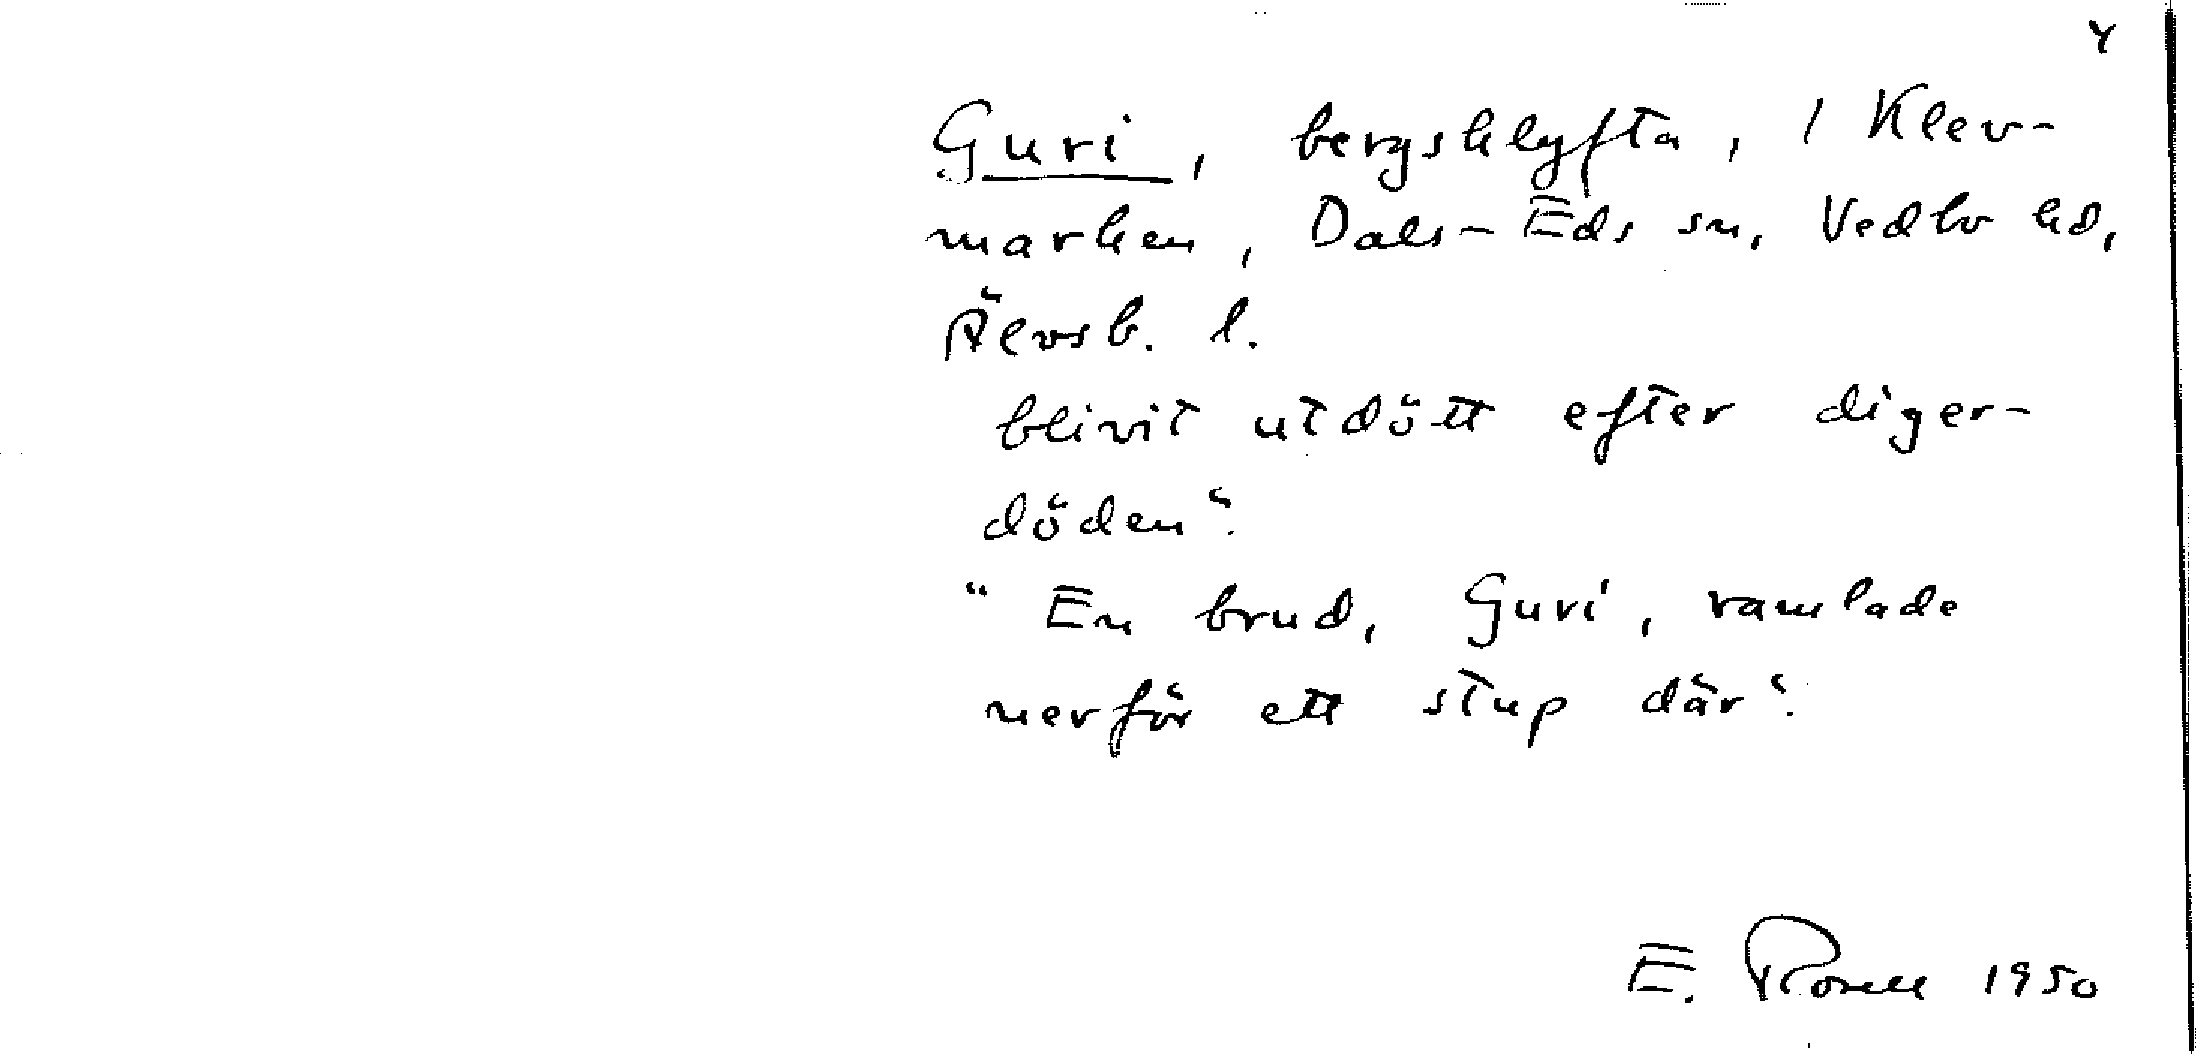 4
Guri, bergsklyfta, i Klev-
marken, Dals-Eds sn, Vedbo hd,
Älvsb. l.
blivit utdött efter diger-
döden".
" En brud, Guri, ramlade
nerför ett stup där".
E. Rosell 1950